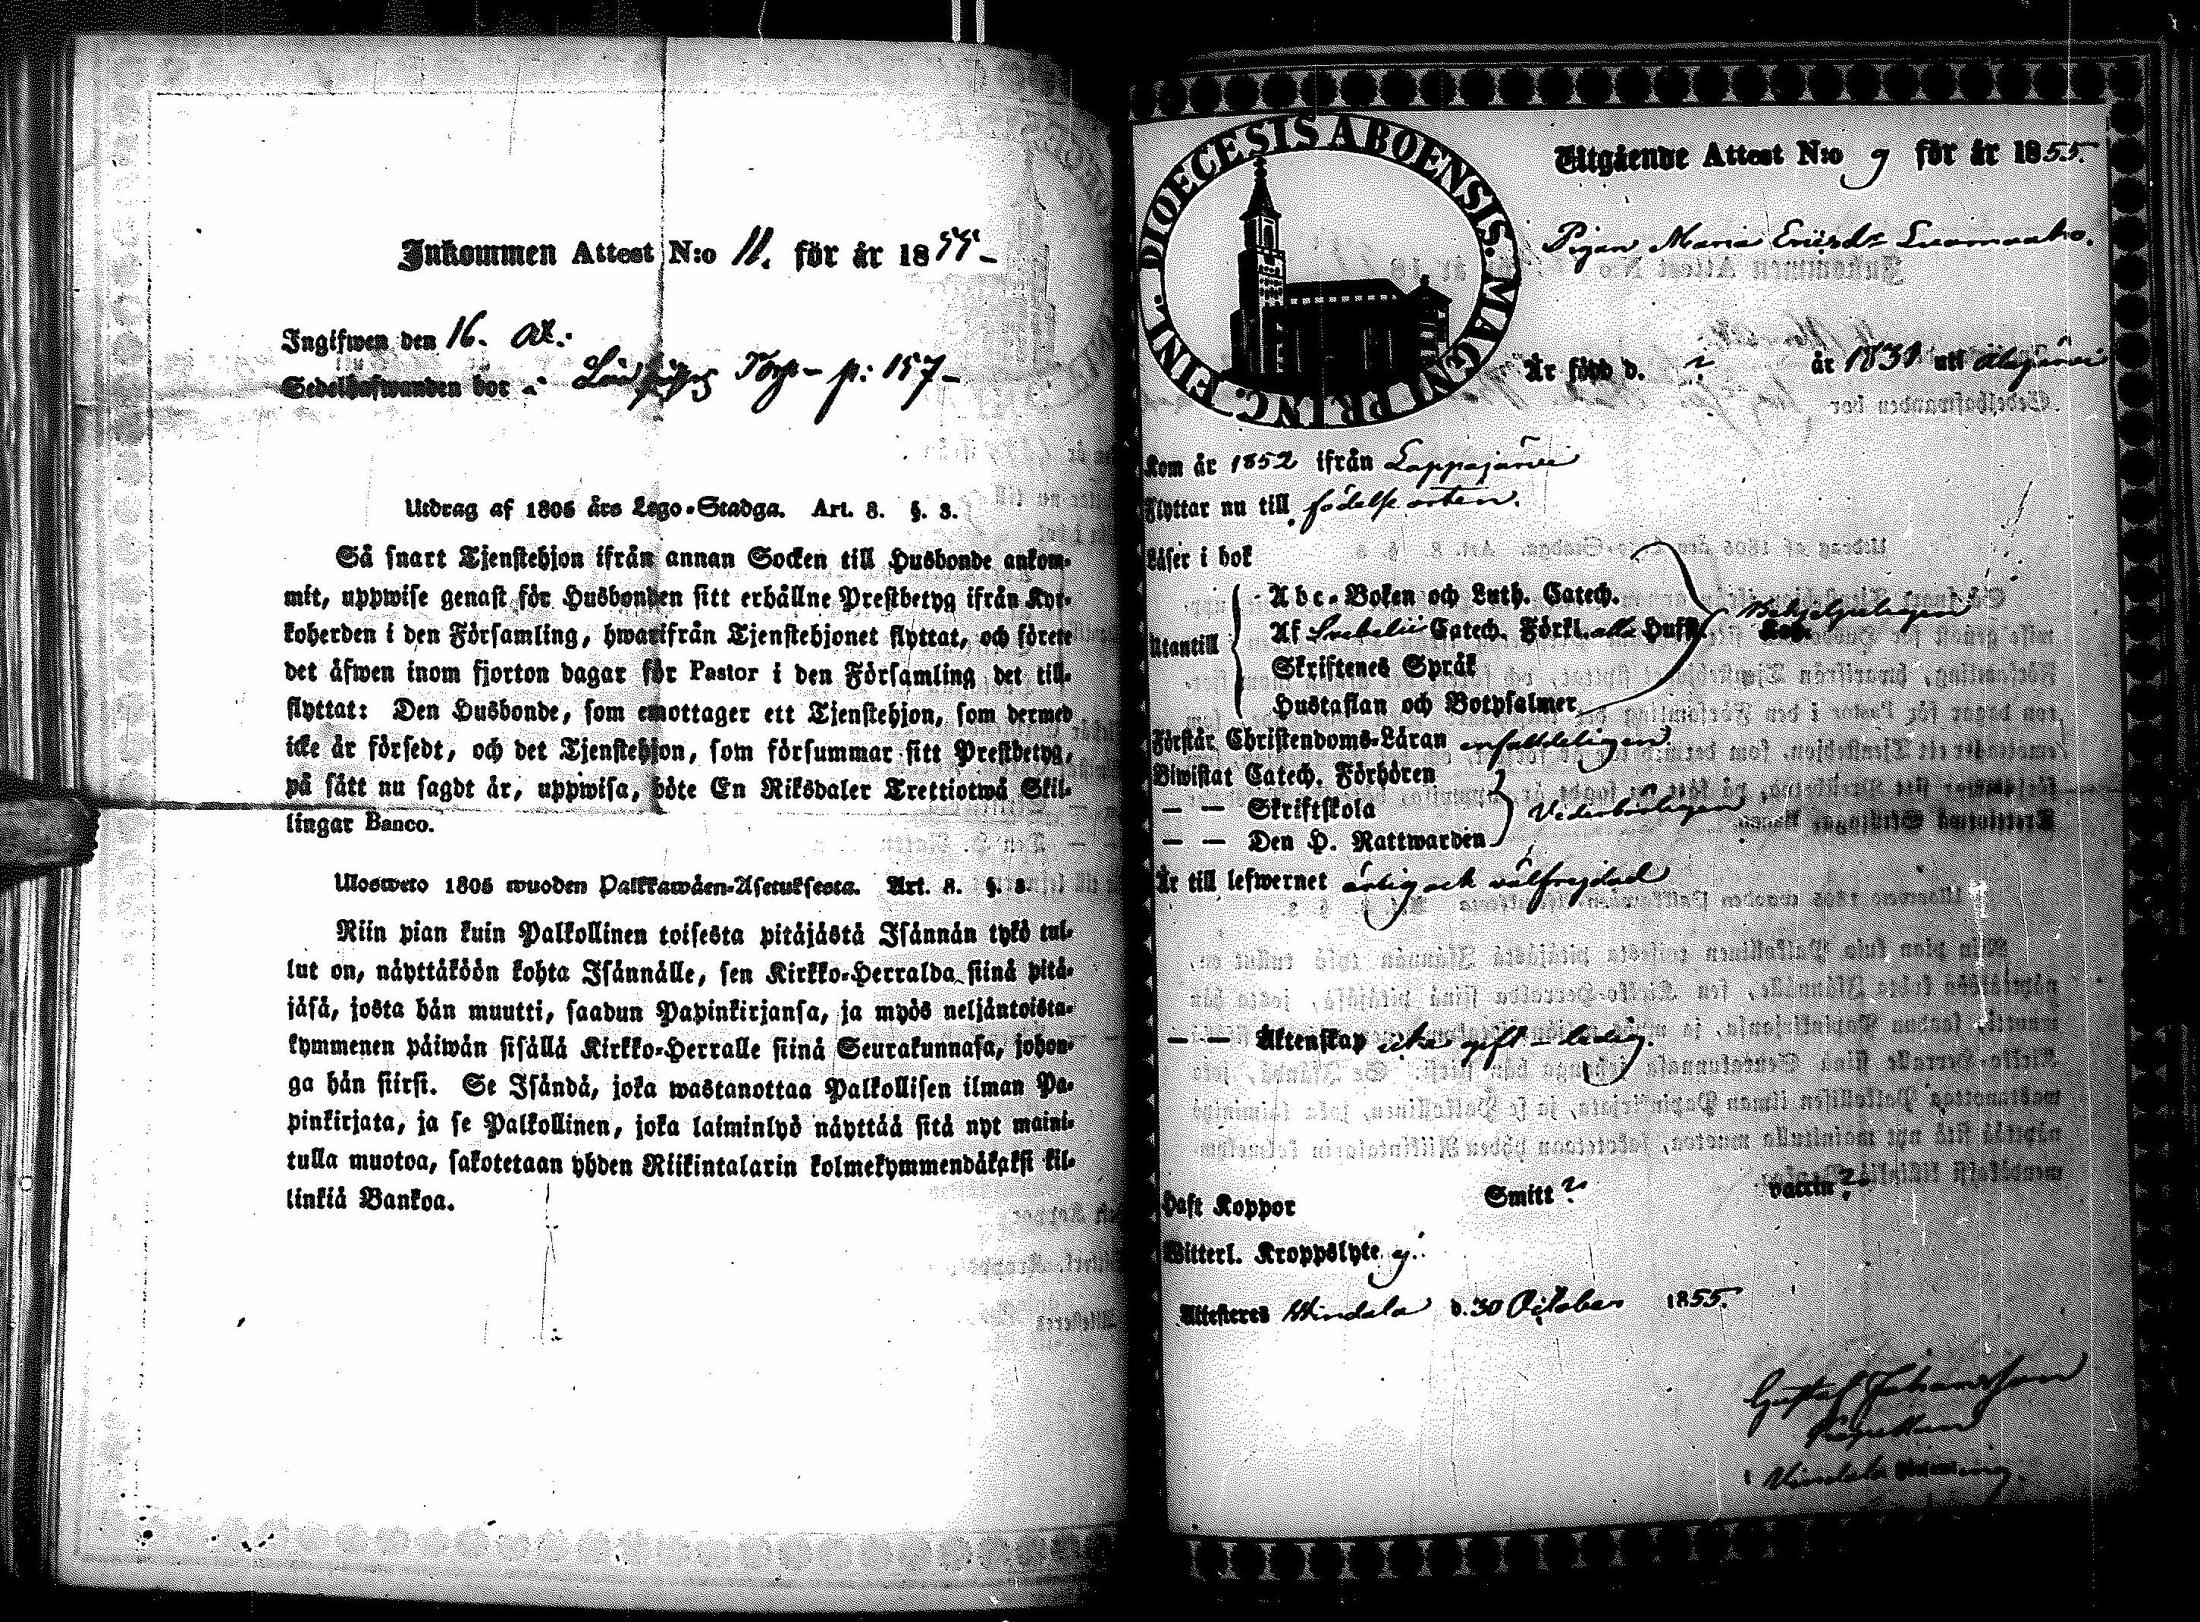 Inkommen Attest N:o 11. för år 1855
Ingifwen den 16.
Sedelhafwanden bor p: 157
Utdrag af 1805 års Lego-Stadga. Art. 8. §. 3.
Så snart Tjenstehjon ifrån annan Socken till Husbonde ankom-
mit, uppwise genast för Husbonden sitt erhållne Prestbetyg ifrån Kyr-
koherden i den Församling, hwarifrån Tjenstehjonet flyttat, och förete
det äfwen inom fjorton dagar för Pastor i den Församling det till-
flyttat: Den Husbonde, som emottager ett Tjenstehjon, som dermed
icke är försedt, och det Tjenstehjon, som försummar sitt Prestbetyg,
på sätt nu sagdt är, uppwisa, böte En Riksdaler Trettiotwå Skil-
lingar Banco.
Ulosweto 1805 wuoden Palkkawäen-Asetuksesta. Art. 8. §. 3.
Niin pian kuin Palkollinen toisesta pitäjästä Isännän tykö tul-
lut on, näyttäköön kohta Isännälle, sen Kirkko-Herralda siinä pitä-
jäsä, josta hän muutti, saadun Papinkirjansa, ja myös neljäntoista-
kymmenen päiwän sisällä Kirkko-Herralle siinä Seurakunnasa, johon-
ga hän siirsi. Se Isändä, joka wastanottaa Palkollisen ilman Pa-
pinkirjata, ja se Palkollinen, joka laiminlyö näyttää sitä nyt maini-
tulla muotoa, sakotetaan yhden Riikintalarin kolmekymmendäkaksi kil-
linkiä Bankoa.
DIOECESIS ABOENSIS. MAGNI PRINC. FINL.
Utgående Attest N:o 9 för år 1855.
Pigan Maria Ericsdr Luomaaho.
Är född d. ? år 1831 uti Alajärvi
Kom år 1852 ifrån Lappajärvi
Flyttar nu till födelse orten.
Läser i bok
Abc-Boken och Luth. Catech.
Utantill Af Svebelii Catech. Förkl. alla Hufst.
Skriftenes Språk
Hustaflan och Botpsalmer
Förstår Christendoms-Läran enfaldeligen
Biwistat Catech. Förhören
— — Skriftskola Vederbörligen
— — Den H. Nattwarden
Är till lefwernet ärlig och välfrejdad
— — Äktenskap icke gift - ledig.
Haft Koppor Smitt ? vaccin ?
Witterl. Kroppslyte ej.
Attesteres Windala d. 30 October 1855.
Gustaf Johansson
Kapellan
Windala